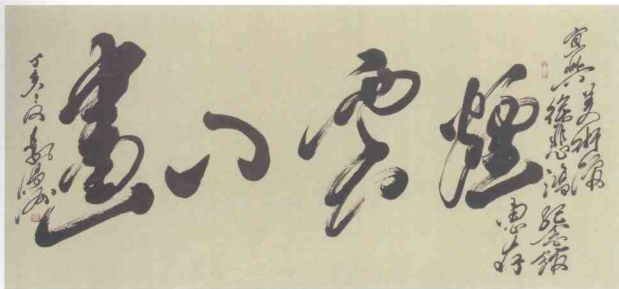 宜興美術館
徐悲鴻紀念館
惠存
煙雲入畫
丁亥